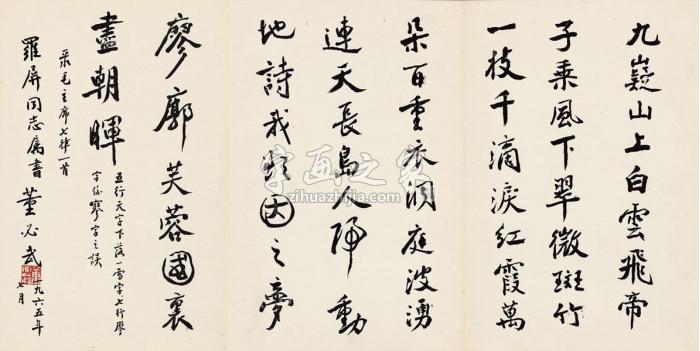 九嶷山上白雲飛帝
子乘風下翠微斑竹
一枝千滴淚紅霞萬
朵百重衣洞庭波湧
連天長島人歌動
地詩我欲因之夢
廖廓芙蓉國裏
盡朝暉
五行天字下落一雪字七行廖
字係寥字之誤
录毛主席七律一首
羅屏同志屬書 董必武
一九六五年
七月
字画之家
zihuazhijia.com